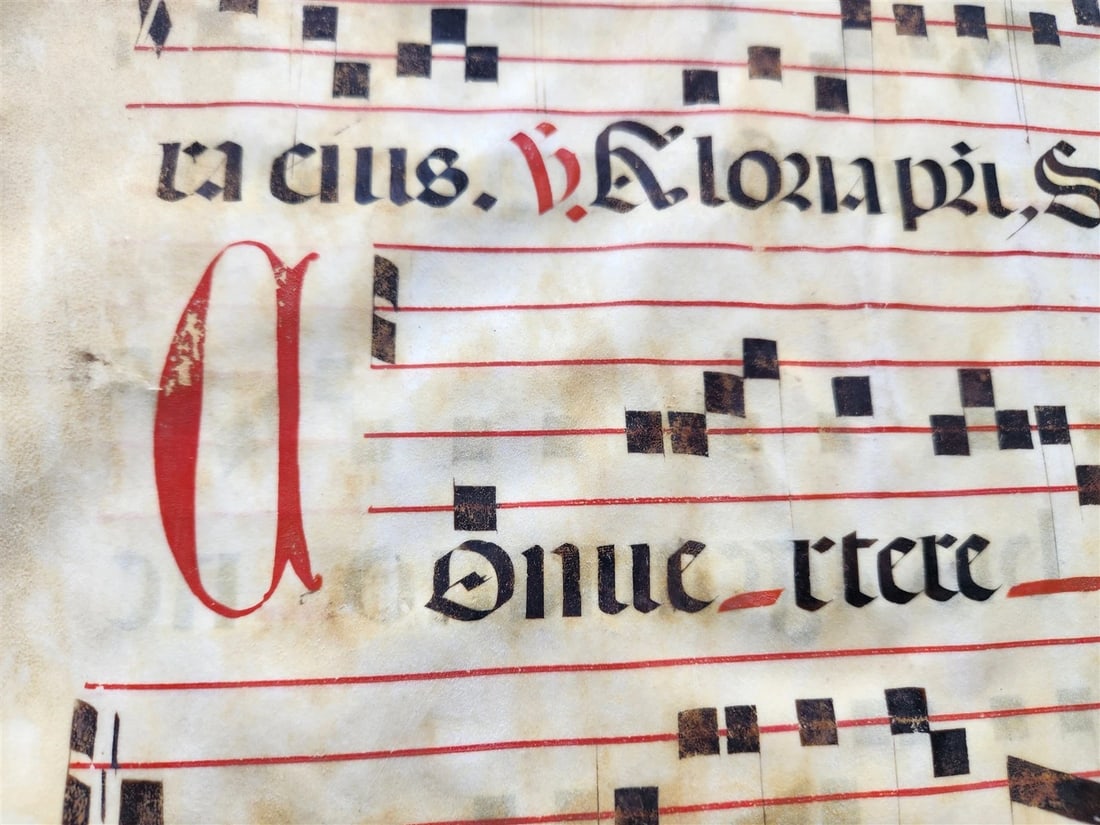 ra eius. ℣. Gloria pri, S
Conue rtere